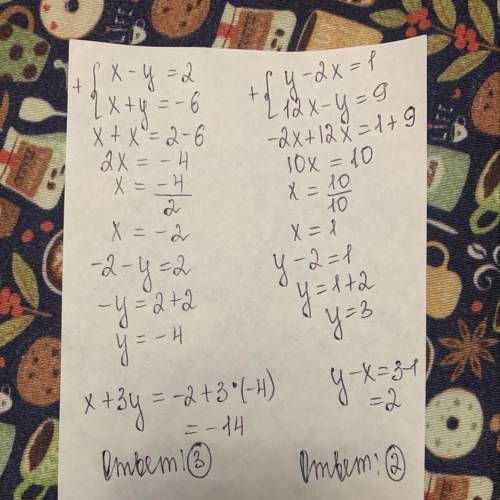 + { x - y = 2
x + y = -6
x + x = 2 - 6
2x = -4
x = -4/2
x = -2
-2 - y = 2
-y = 2 + 2
y = -4
x + 3y = -2 + 3 · (-4)
= -14
Ответ: ③
+ { y - 2x = 1
12x - y = 9
-2x + 12x = 1 + 9
10x = 10
x = 10/10
x = 1
y - 2 = 1
y = 1 + 2
y = 3
y - x = 3 - 1
= 2
Ответ: ②